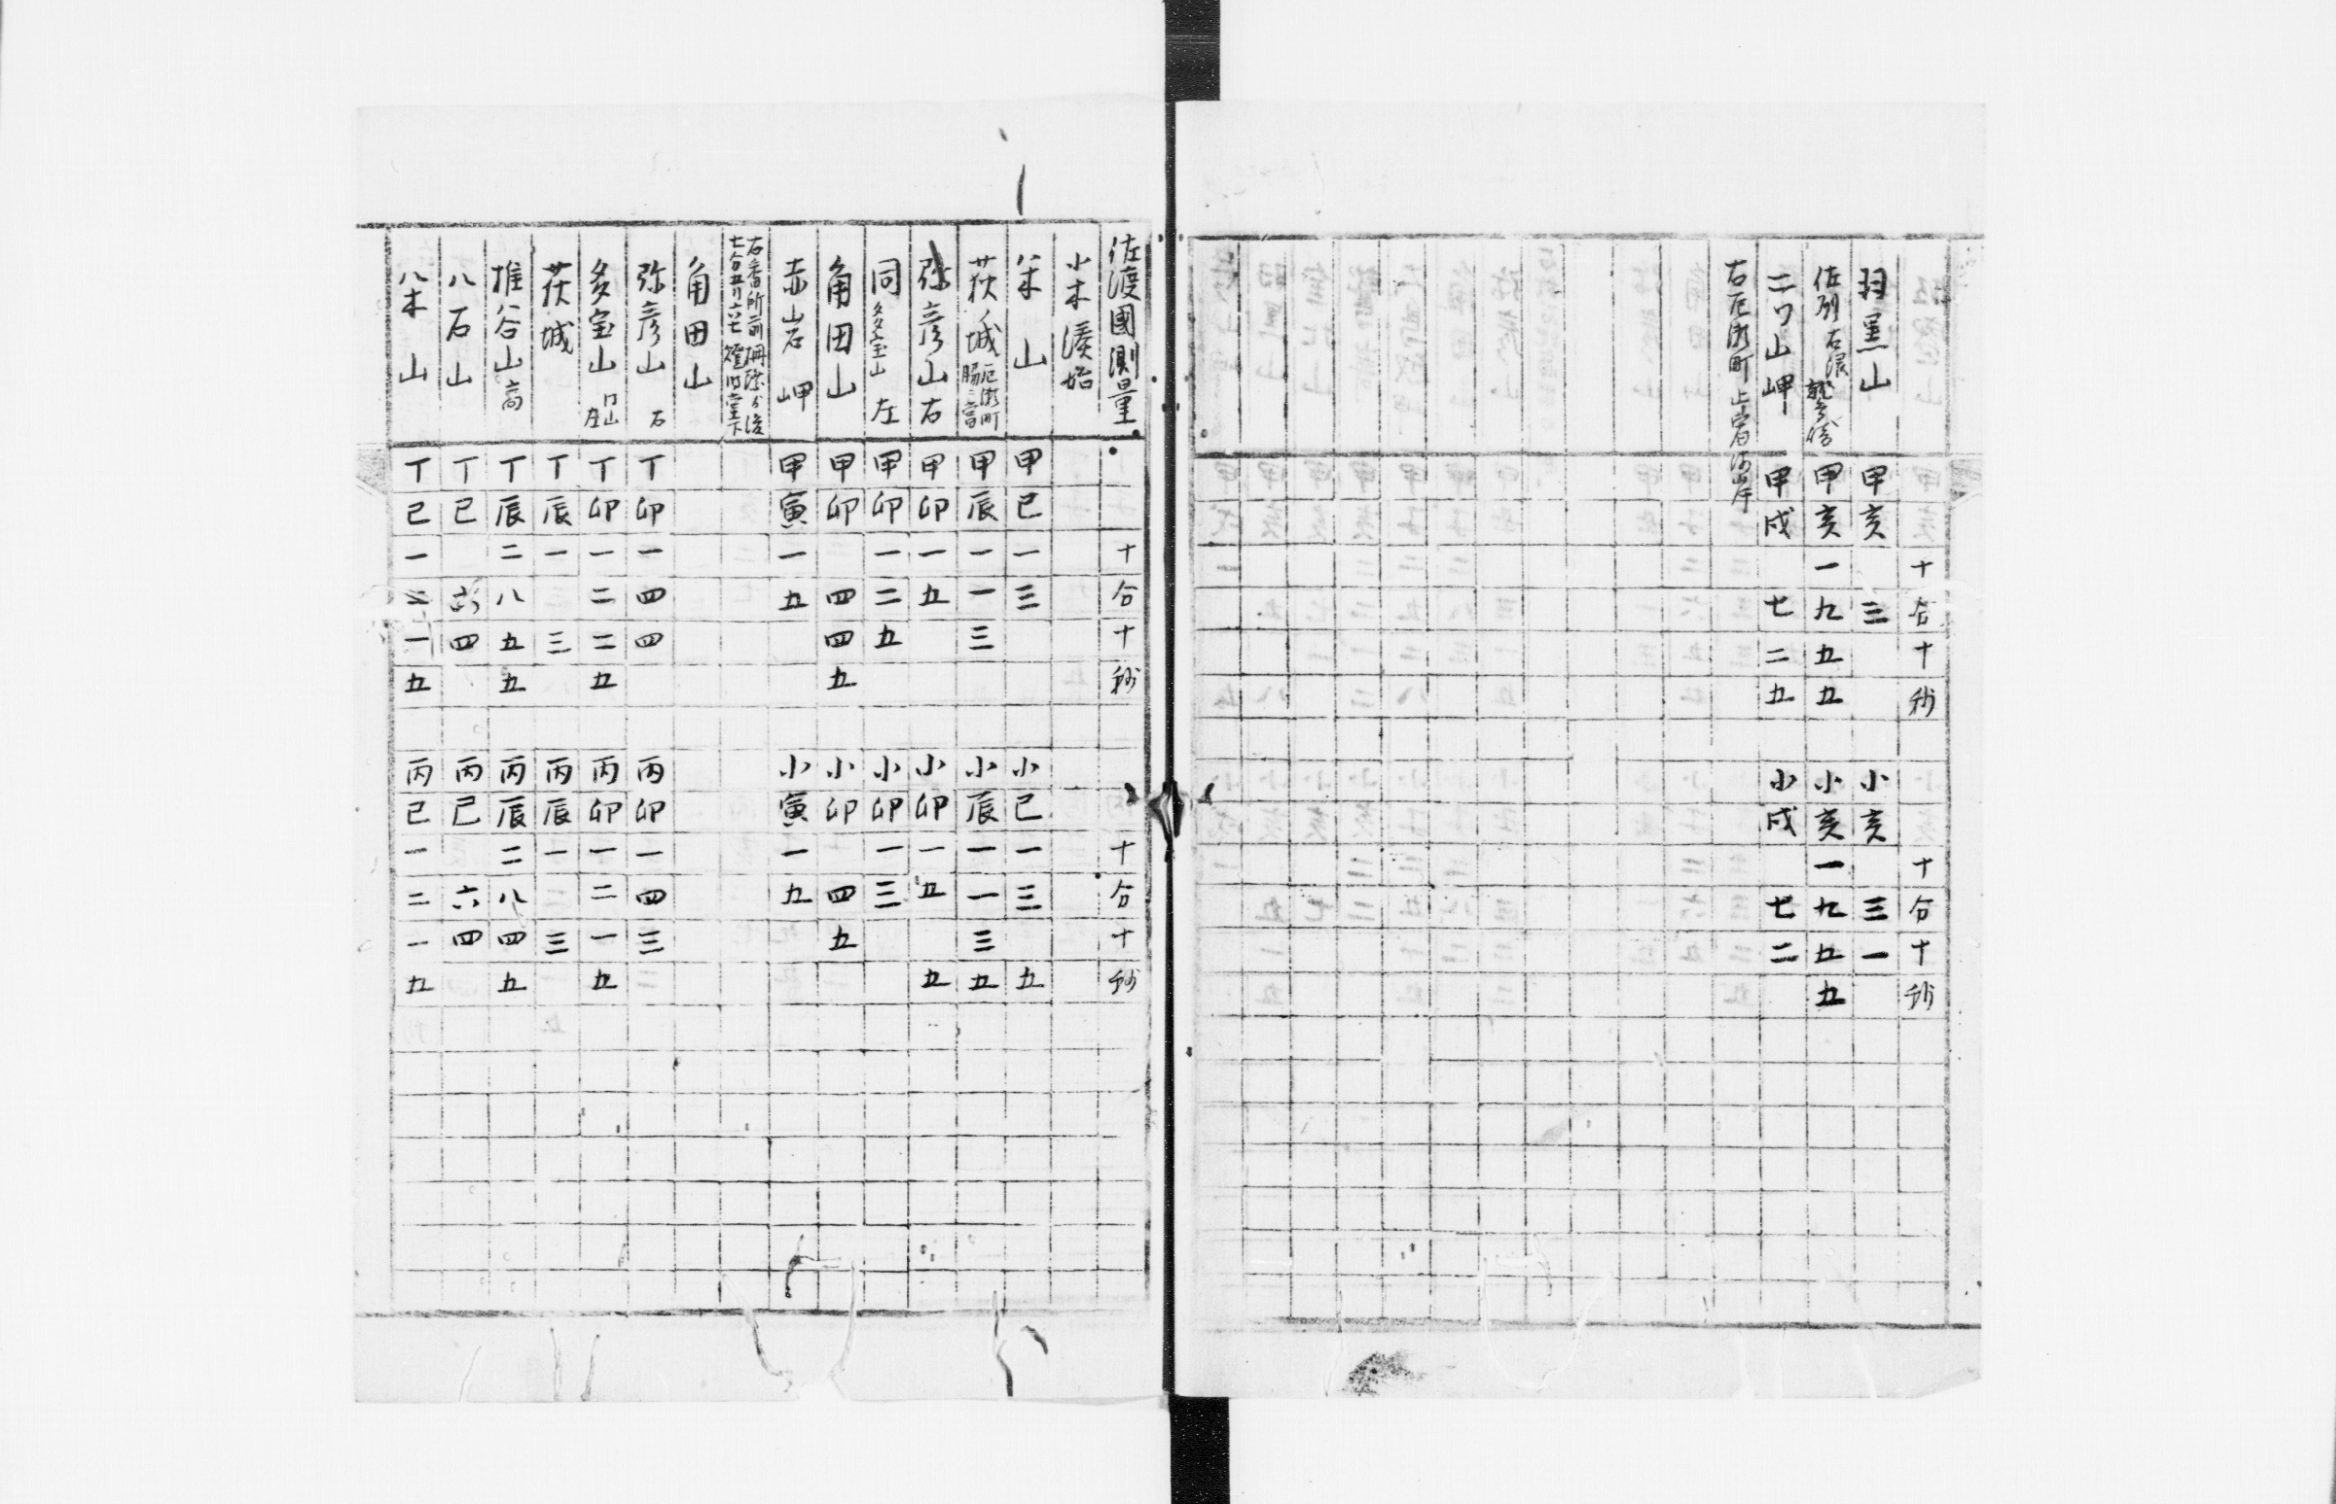 十分十秒 十分十秒
羽黒山 甲亥 三 小亥 三一
佐州 甲亥一九五五 小亥一九五五
二ツ山岬 甲戌 七二五 小戌 七二
右尼瀬町
佐渡國測量 十分十秒 十分十秒
小木湊始
米山 甲巳一三 小巳一三 五
荻ノ城 尼瀬町 甲辰一一三 小辰一一三五
弥彦山 右 甲卯一五 小卯一五 五
同 多宝山 左 甲卯一二五 小卯一三
角田山 甲卯 四四五 小卯 四五
赤岩岬 甲寅一五 小寅一五
右番所前
角田山
弥彦山 右 丁卯一四四 丙卯一四三
多宝山 同山 左 丁卯一二二五 丙卯一二一五
荻城 丁辰一 三 丙辰一 三
椎谷山 高 丁辰二八五五 丙辰二八四五
八石山 丁巳 六四 丙巳 六四
米山 丁巳一二一五 丙巳一二一五